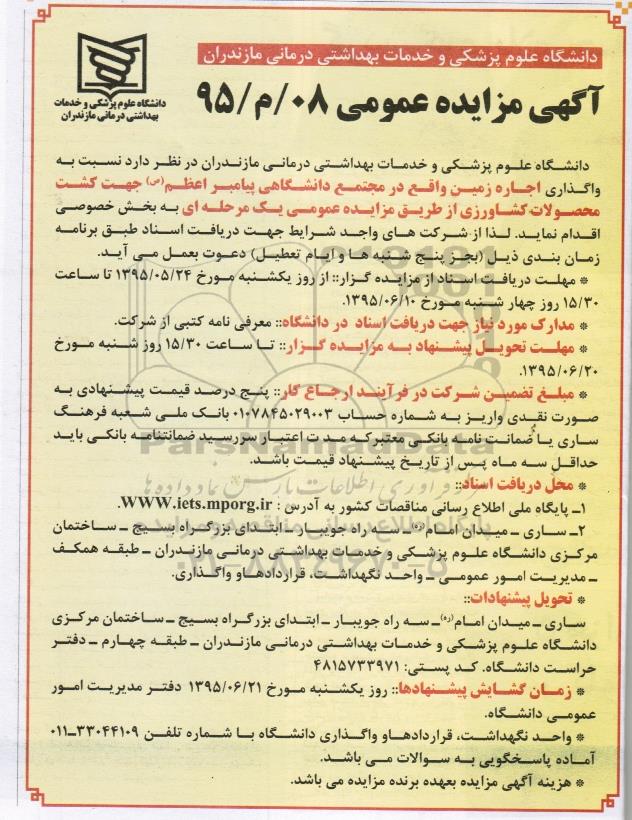 دانشگاه علوم پزشکی و خدمات بهداشتی درمانی مازندران
آگهی مزایده عمومی ۰۸/م/۹۵
دانشگاه علوم پزشکی و خدمات
بهداشتی درمانی مازندران
دانشگاه علوم پزشکی و خدمات بهداشتی درمانی مازندران در نظر دارد نسبت به
واگذاری اجاره زمین واقع در مجتمع دانشگاهی پیامبر اعظم(ص) جهت کشت
محصولات کشاورزی از طریق مزایده عمومی یک مرحله ای به بخش خصوصی
اقدام نماید. لذا از شرکت های واجد شرایط جهت دریافت اسناد طبق برنامه
زمان بندی ذیل (بجز پنج شنبه ها و ایام تعطیل) دعوت بعمل می آید.
* مهلت دریافت اسناد از مزایده گزار:: از روز یکشنبه مورخ ۱۳۹۵/۰۵/۲۴ تا ساعت
۱۵/۳۰ روز چهار شنبه مورخ ۱۳۹۵/۰۶/۱۰.
* مدارک مورد نیاز جهت دریافت اسناد در دانشگاه:: معرفی نامه کتبی از شرکت.
* مهلت تحویل پیشنهاد به مزایده گزار:: تا ساعت ۱۵/۳۰ روز شنبه مورخ
۱۳۹۵/۰۶/۲۰.
* مبلغ تضمین شرکت در فرآیند ارجاع کار:: پنج درصد قیمت پیشنهادی به
صورت نقدی واریز به شماره حساب ۰۱۰۷۸۴۵۰۲۹۰۰۳ بانک ملی شعبه فرهنگ
ساری یا ضمانت نامه بانکی معتبرکه مدت اعتبار سررسید ضمانتنامه بانکی باید
حداقل سه ماه پس از تاریخ پیشنهاد قیمت باشد.
* محل دریافت اسناد::
۱ـ پایگاه ملی اطلاع رسانی مناقصات کشور به آدرس : WWW.iets.mporg.ir.
۲ـ ساری ـ میدان امام(ره)ـ سه راه جویبار ـ ابتدای بزرگراه بسیج ـ ساختمان
مرکزی دانشگاه علوم پزشکی و خدمات بهداشتی درمانی مازندران ـ طبقه همکف
ـ مدیریت امور عمومی ـ واحد نگهداشت، قراردادهاو واگذاری.
* تحویل پیشنهادات::
ساری ـ میدان امام(ره)ـ سه راه جویبار ـ ابتدای بزرگراه بسیج ـ ساختمان مرکزی
دانشگاه علوم پزشکی و خدمات بهداشتی درمانی مازندران ـ طبقه چهارم ـ دفتر
حراست دانشگاه. کد پستی: ۴۸۱۵۷۳۳۹۷۱
* زمان گشایش پیشنهادها:: روز یکشنبه مورخ ۱۳۹۵/۰۶/۲۱ دفتر مدیریت امور
عمومی دانشگاه.
* واحد نگهداشت، قراردادهاو واگذاری دانشگاه با شماره تلفن ۳۳۰۴۴۱۰۹-۰۱۱
آماده پاسخگویی به سوالات می باشد.
* هزینه آگهی مزایده بعهده برنده مزایده می باشد.
ParsNamadData